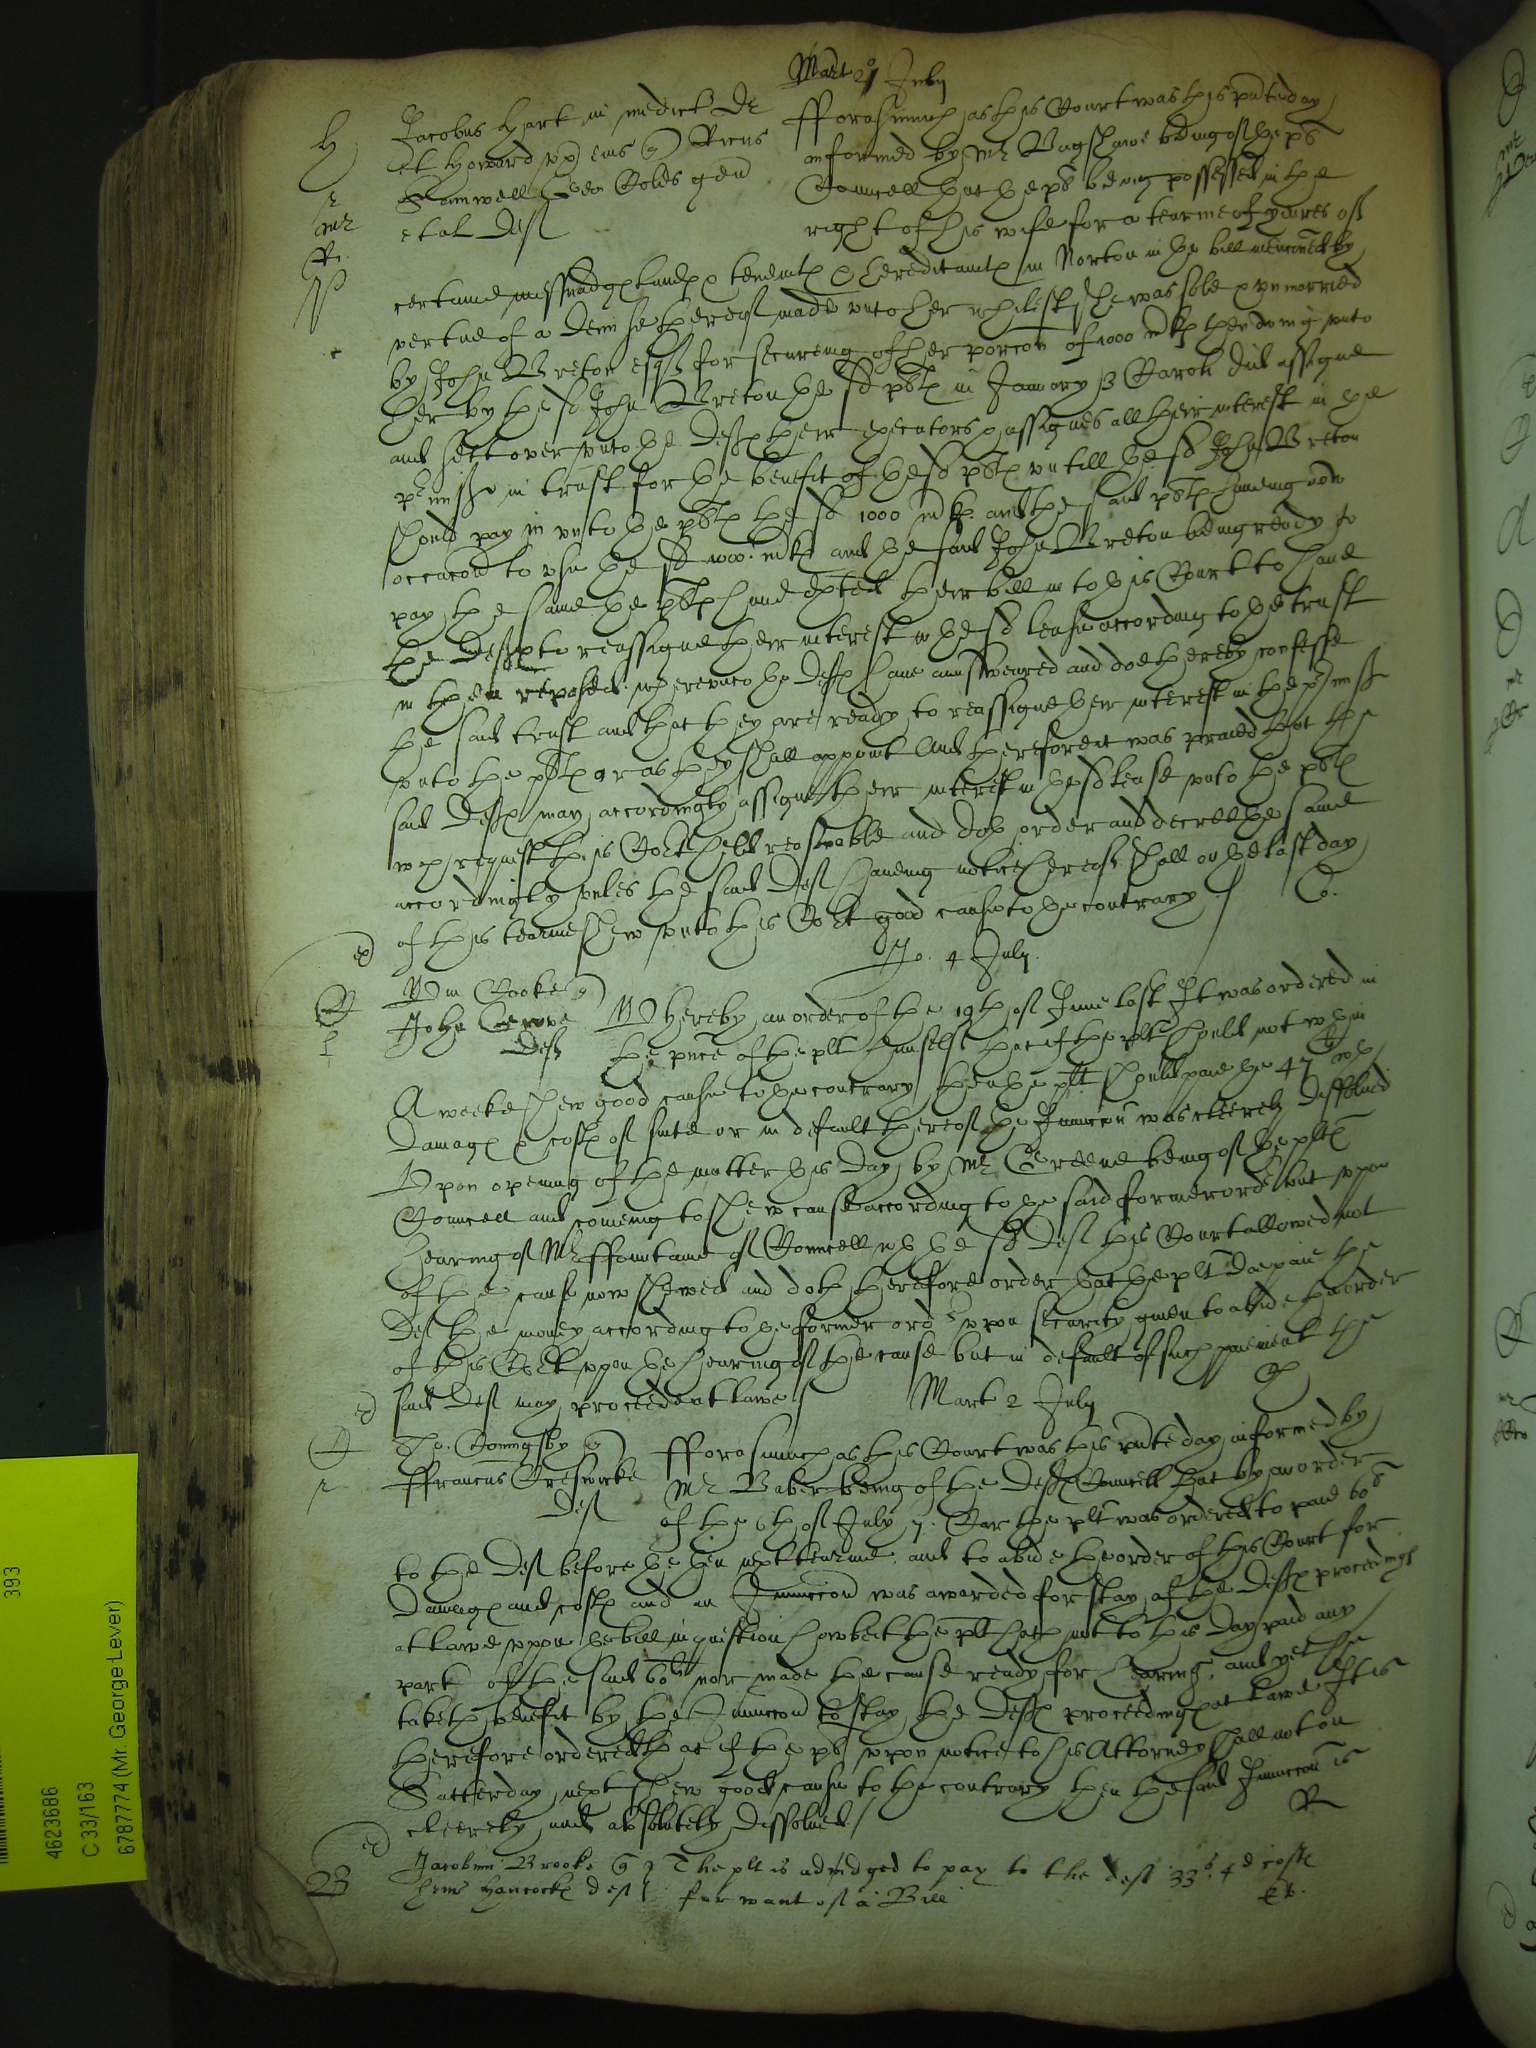 Mart 2 July
H Jacobus Hart in medic Dr
et Howard vx eius Ricus
Samwell Geo Coles gen
et al Def
fforasmuch as this Court was this pnte day
informed by Mr Bagshawe being of the pts
Councell that the pts being possessed in the
right of his wife for a tearme of yeares of
certaine messuadges lands & tenemts & hereditamts in Norton in the bill menconed by
vertue of a Demise thereof made vnto her whilest she was sole & vnmarried
by John Breton esqr for secureing of her porcon of 1000 mks then oweing vnto
her by the sd John Breton the sd plts in January 3 Caroli did assigne
and sett over vnto the Defts their executors & assignes all their interest in the
pmisses in trust for the benefit of the sd plts vntill the sd John Breton
should pay in vnto the plts the sd 1000 mks. and the said plts haueing now
occacon to vse the sd 1000 mks and the said John Breton being ready to
pay the same the plts haue exhited their bill into this Court to haue
the Defts to reassigne their interest in the sd lease according to the trust
in them reposed. wherevnto the Defts haue aunsweared and doe thereby confesse
the said trust and that they are ready to reassigne their interest in the pmisses
vnto the plts or as they shall appoint And therefore it was praied that the
said Defts may accordingly assigne their interest in the sd lease vnto the plts
wch request this Cort held reasonable and doth order and decree the same
accordingly vnles the said Deft haueing notice hereof shall on the last day
of this tearme shew vnto this Cort good cause to the contrary
Jo. 4 July
Wm Cooke
John Greene
Deft
Whereby an order of the 19th of June last It was ordered in
the pnce of the plt himselfe that if the plt should not within
A weeke shew good cause to the contrary then the plt should paie the 47 wth
Damages & costs of suite or in default thereof the Iniunccon was cleerely dissolued
Vpon opening of the matter this Day by Mr Greene being of the plts
Councell and comeing to shew cause according to the said former order but vpon
hearing of Mr ffountaine of Councell wth the sd Deft this Court allowed not
of the cause now shewed and doth therefore order that the plt doe paie the
Deft the money according to the former order vpon security giuen to abide the order
of this Cort vpon the hearing of the cause but in default of such paiement the
said Deft may proceed at lawe
Mart 2 July
Tho. Coningsby
ffrancus Creswicke
Deft
fforasmuch as this Court was this pnte day informed by
Mr Baber being of the Defts Councell that by an order
of the 6th of July 7. Car the plt was ordered to paie 60s
to the Deft before the then next tearme and to abide the order of this Court for
Damages and costs and an Iniunccon was awarded for stay of the Defts proceedings
at lawe vpon the bill in question howbeit the plt hath not to this Day paid any
part of the said 60s nor made the cause ready for hearing, and yet the
taketh benefit by the Iniunccon to stay the Defts proceedings at lawe It is
therefore ordered that if the plt vpon notice to his Attorney shall not on
Satterday next shew good cause to the contrary then the said Iniunccon is
cleerely and absolutely dissolued
R
Jacobum Brooke
Hancocke deft
The plt is adiudged to pay to the deft 33s. 4d costs
for want of a Bill
393
4623686
C 33/163
67877774 (Mr. George Lever)